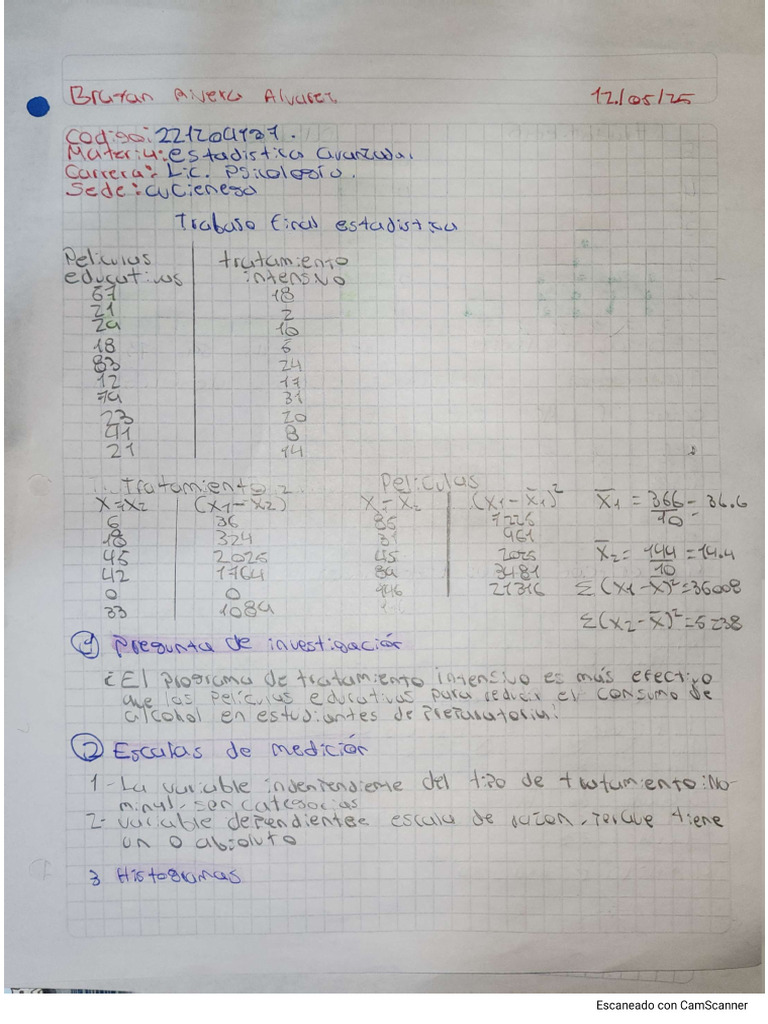 Brayan Rivera Alvarez 12/05/25
Codigo: 221204737.
Materia: estadistica avanzada.
Carrera: Lic. Psicología.
Sede: cuCienega
Trabajo final estadistica
Peliculas educativas tratamiento intensivo
67 18
21 2
24 10
18 6
83 24
12 17
74 31
23 20
41 8
21 14
Tratamiento 2 Peliculas
X=X2 (X1-X2) X-X2 (X1-X̄1)²
X̄1 = 366/10 = 36.6
6 36 85 7225
18 324 31 961
45 2025 45 2025
X̄2 = 144/10 = 14.4
42 1764 3481
0 0 146 21316
Σ(X1-X̄)²=36008
33 1089
Σ(X2-X̄)²=5238
① Pregunta de investigación
¿El programa de tratamiento intensivo es más efectivo
que las peliculas educativas para reducir el consumo de
alcohol en estudiantes de preparatoria?
② Escalas de medición
1- La variable independiente del tipo de tratamiento: No-
minal, son categorias
2- variable dependientee escala de razon, porque tiene
un 0 absoluto
3 Histogramas
Escaneado con CamScanner